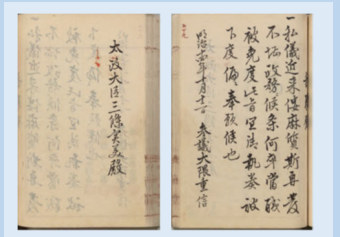 一私儀近来僂麻質斯専発
不堪政務候条何卒当職
被免度此旨宜法執奏被
下度俯奉願候也
明治十四年十月十一日 参議大隈重信
太政大臣三條実美殿